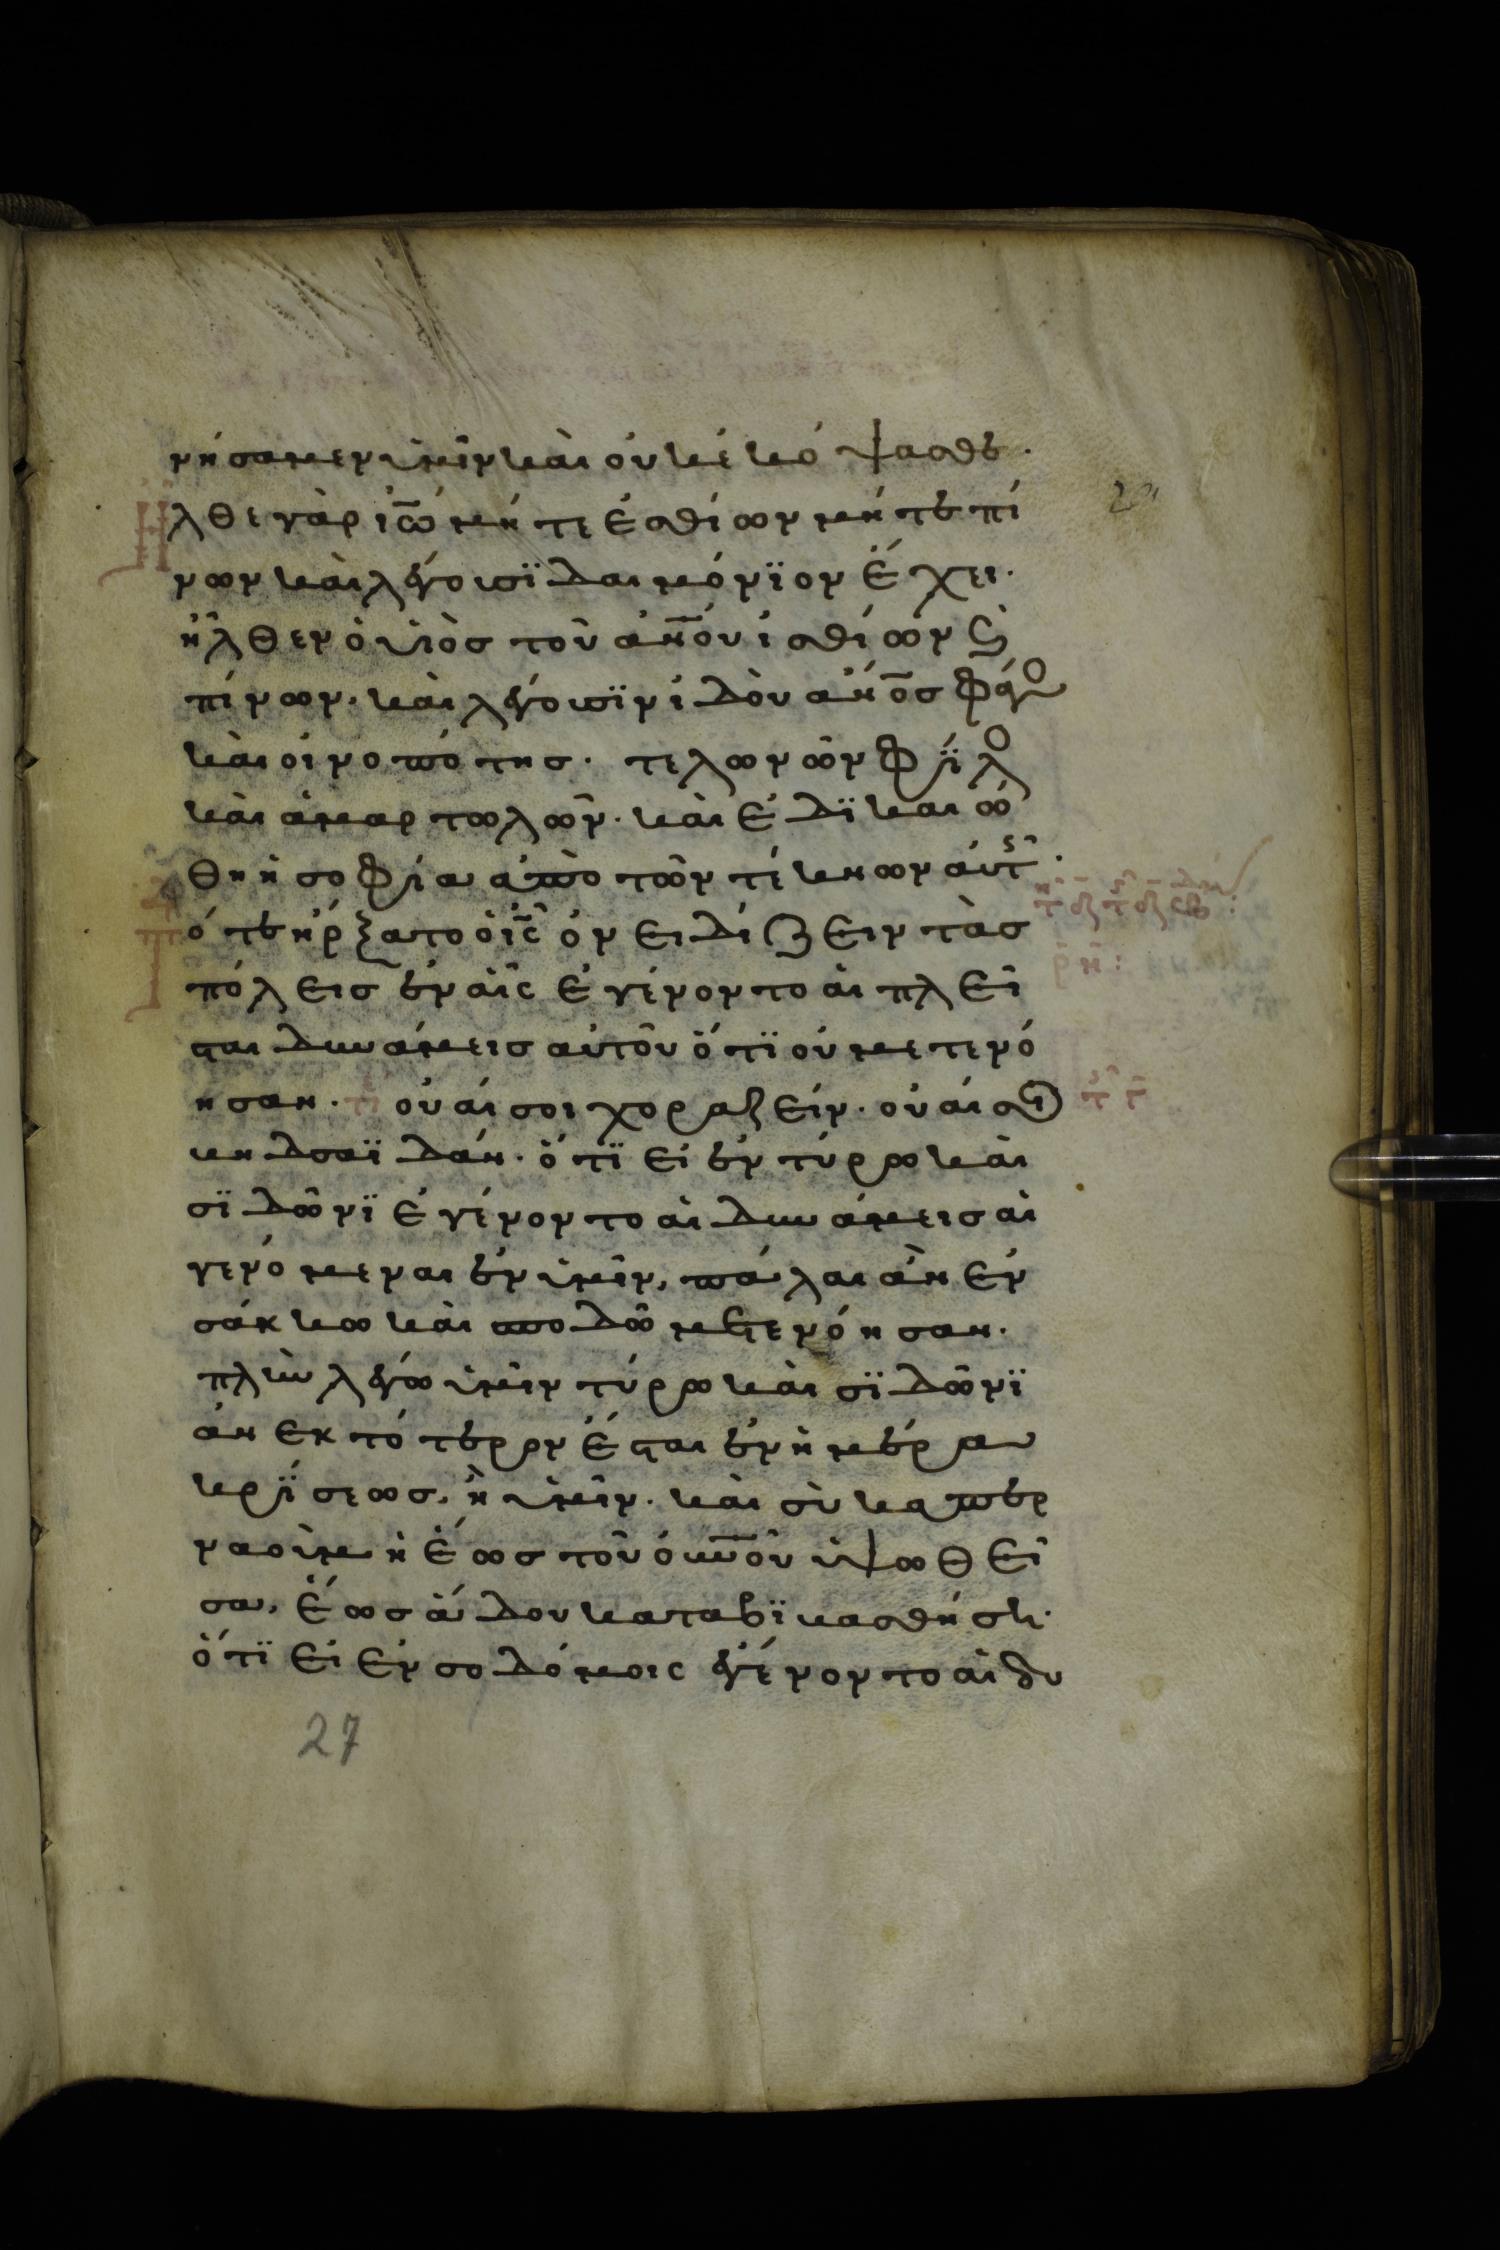 νήσαμεν ὑμῖν καὶ οὐκ ἐκόψασθε.
Ἦλθε γὰρ ἰω̅ μήτε ἐσθίων μήτε πί
νων καὶ λέγουσϊ δαιμόνϊον ἔχει.
ἦλθεν ὁ υἱὸσ τοῦ ἀν̅ου ἐσθίων ϗ
πίνων. καὶ λέγουσϊν ἰδοὺ αν̅οσ φάγο
καὶ οἰνοπότησ. τελωνῶν φϊλο
καὶ ἁμαρτωλῶν. καὶ ἐδϊκαιώ
θη ἡ σοφία ἀπὸ τῶν τέκνων αὐτ
Τότε ἤρξατο ὁ ις̅ ὀνειδίζειν τὰσ
πόλεισ ἐν αἷς ἐγένοντο αἱ πλεῖ
σται δυνάμεισ αὐτοῦ ὅτϊ οὐ μετενό
ησαν. οὐαί σοι χοραζείν. οὐαί σοι
βηδσαϊδάν. ὅτϊ εἰ ἐν τύρρω καὶ
σϊδῶνϊ ἐγένοντο αἱ δυνάμεισ αἱ
γενόμεναι ἐν ὑμῖν, πάλαι ἂν ἐν
σάκκω καὶ σποδῶ μετενόησαν.
πλὴν λέγω ὑμῖν τύρρω καὶ σϊδῶνϊ
ἀνεκτότερρν ἔσται ἐν ἡμέρα
κρϊσεωσ, ἢ ὑμῖν. καὶ σὺ καπερ
ναοὺμ ἡ ἕωσ τοῦ οὐν̅οῦ ὑψωθεῖ
σα, ἕωσ ἅδου καταβϊβασθήση.
ὅτϊ εἰ ἐν σοδόμοις ἐγένοντο αἱ δυ
27